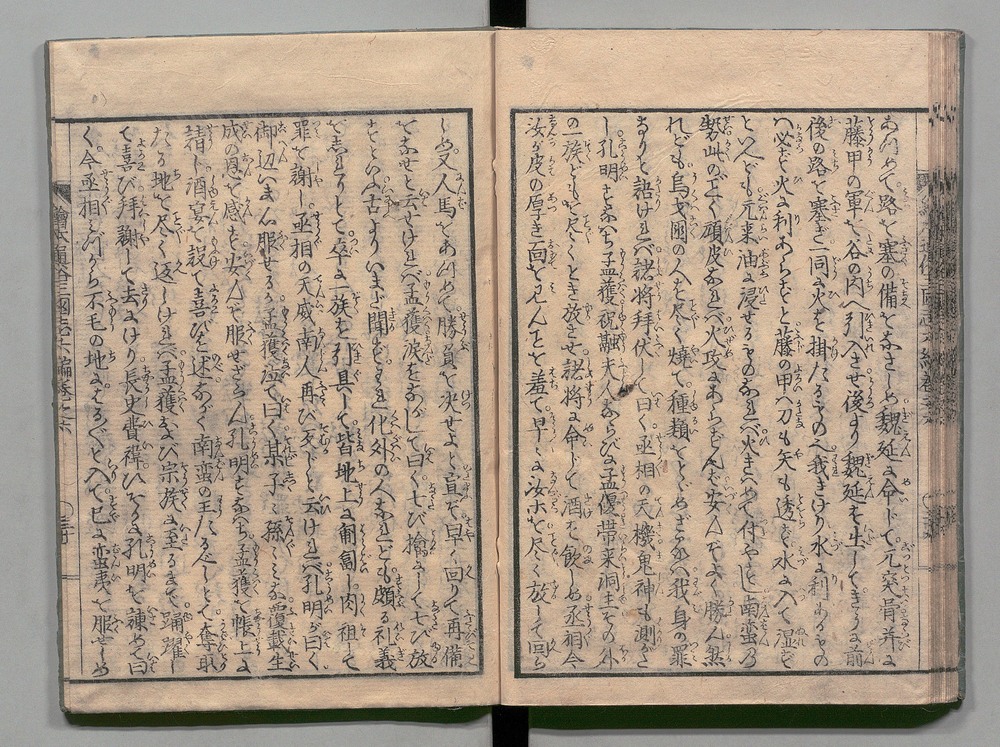 路を塞の備をなさしめ魏延に命じて
藤甲の軍を谷の内へ引いきせ後より魏延を生してきうに前
後の路を塞ぎ一同に火を掛たるもの我きけり水に利あるもの
ハ必ず火に利あらずと藤の甲ハ刀も矢も透らず水に入て湿ず
といへども元来油に浸せるものなれバ火きハめて付やすし南蛮の
勢此のごとく頑皮なれバ火攻にあらずんバ安んぞよく勝ん然
れども烏戈国の人を尽く焼て種類をとゞめざるハ我身の罪
なりと語けれバ諸将拝伏して曰く丞相の天機鬼神も測がた
し孔明すなハち孟獲祝融夫人ならびに孟優帯来洞主その外
の一族ども尽くとき放させ諸将に命じて酒を飲しめ丞相今
汝が皮の厚き面を見んことを羞て早々に汝ホを尽く放して回ら
しめ又人馬をあつめて勝負を決せよと宣ぞ早く回りて再備
をなせと云せけれバ孟獲涙をながして曰く七び擒にして七び放
といふ古よりいまだ聞ず化外の人なれども頗る礼義
をしれりとて卒に一族を引具して皆地上に匍匐し肉祖して
罪を謝し丞相の天威南人再び反じと云けれバ孔明が曰く
御辺いま心服せるか孟獲泣て曰く某子々孫々みな覆載生
成の恩を感ず安んぞ服せざらん孔明すなハち孟獲を帳上に
請じ酒宴を設て喜びを述ながく南蛮の王たるべしとて奪取
たる地を尽く返しけれバ孟獲及び宗族に至るまで踊躍し
て喜び拝謝して去にけり長史費禕ひそかに孔明を諌めて曰
く今丞相みづから不毛の地にふかく入て已に蛮夷を服せしめ
繪本通俗三國志